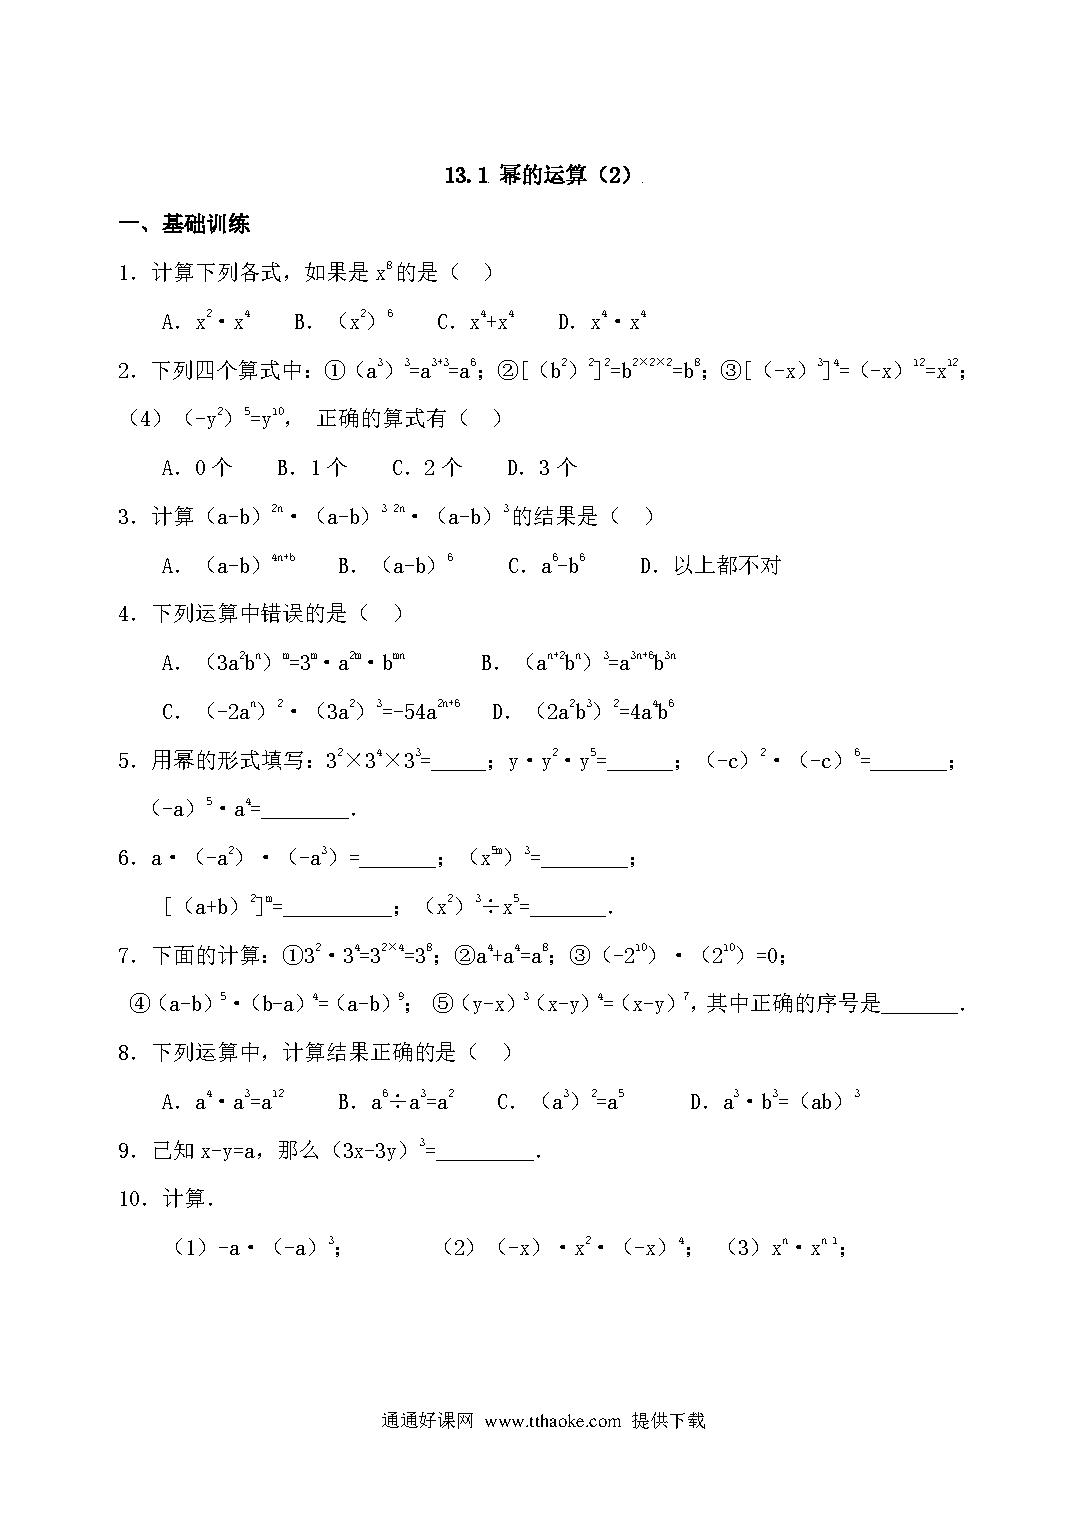 13.1 幂的运算（2）
一、基础训练
1．计算下列各式，如果是x⁸的是（　）
A．x²·x⁴　B．（x²）⁶　C．x⁴+x⁴　D．x⁴·x⁴
2．下列四个算式中：①（a³）³=a³⁺³=a⁶；②[（b²）²]²=b²ˣ²ˣ²=b⁸；③[（-x）³]⁴=（-x）¹²=x¹²；
（4）（-y²）⁵=y¹⁰， 正确的算式有（　）
A．0个　B．1个　C．2个　D．3个
3．计算（a-b）²ⁿ·（a-b）³ ²ⁿ·（a-b）³的结果是（　）
A．（a-b）⁴ⁿ⁺ᵇ　B．（a-b）⁶　C．a⁶-b⁶　D．以上都不对
4．下列运算中错误的是（　）
A．（3a²bⁿ）ᵐ=3ᵐ·a²ᵐ·bᵐⁿ　B．（aⁿ⁺²bⁿ）³=a³ⁿ⁺⁶b³ⁿ
C．（-2aⁿ）²·（3a²）³=-54a²ⁿ⁺⁶　D．（2a²b³）²=4a⁴b⁶
5．用幂的形式填写：3²×3⁴×3³=_____；y·y²·y⁵=______；（-c）²·（-c）⁶=_______；
（-a）⁵·a⁴=________．
6．a·（-a²）·（-a³）=_______；（x⁵ᵐ）³=________；
[（a+b）²]ᵐ=__________；（x²）³÷x⁵=_______．
7．下面的计算：①3²·3⁴=3²ˣ⁴=3⁸；②a⁴+a⁴=a⁸；③（-2¹⁰）·（2¹⁰）=0；
④（a-b）⁵·（b-a）⁴=（a-b）⁹； ⑤（y-x）³（x-y）⁴=（x-y）⁷，其中正确的序号是_______．
8．下列运算中，计算结果正确的是（　）
A．a⁴·a³=a¹²　B．a⁶÷a³=a²　C．（a³）²=a⁵　D．a³·b³=（ab）³
9．已知x-y=a，那么（3x-3y）³=_________．
10．计算．
（1）-a·（-a）³；　（2）（-x）·x²·（-x）⁴； （3）xⁿ·xⁿ ¹；
通通好课网 www.tthaoke.com 提供下载